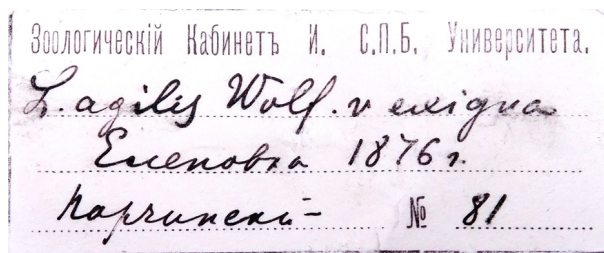 Зоологическій Кабинетъ И. С.П.Б. Университета.
L. agilis Wolf. v exigua
Еленовка 1876 г.
Карчинскій № 81